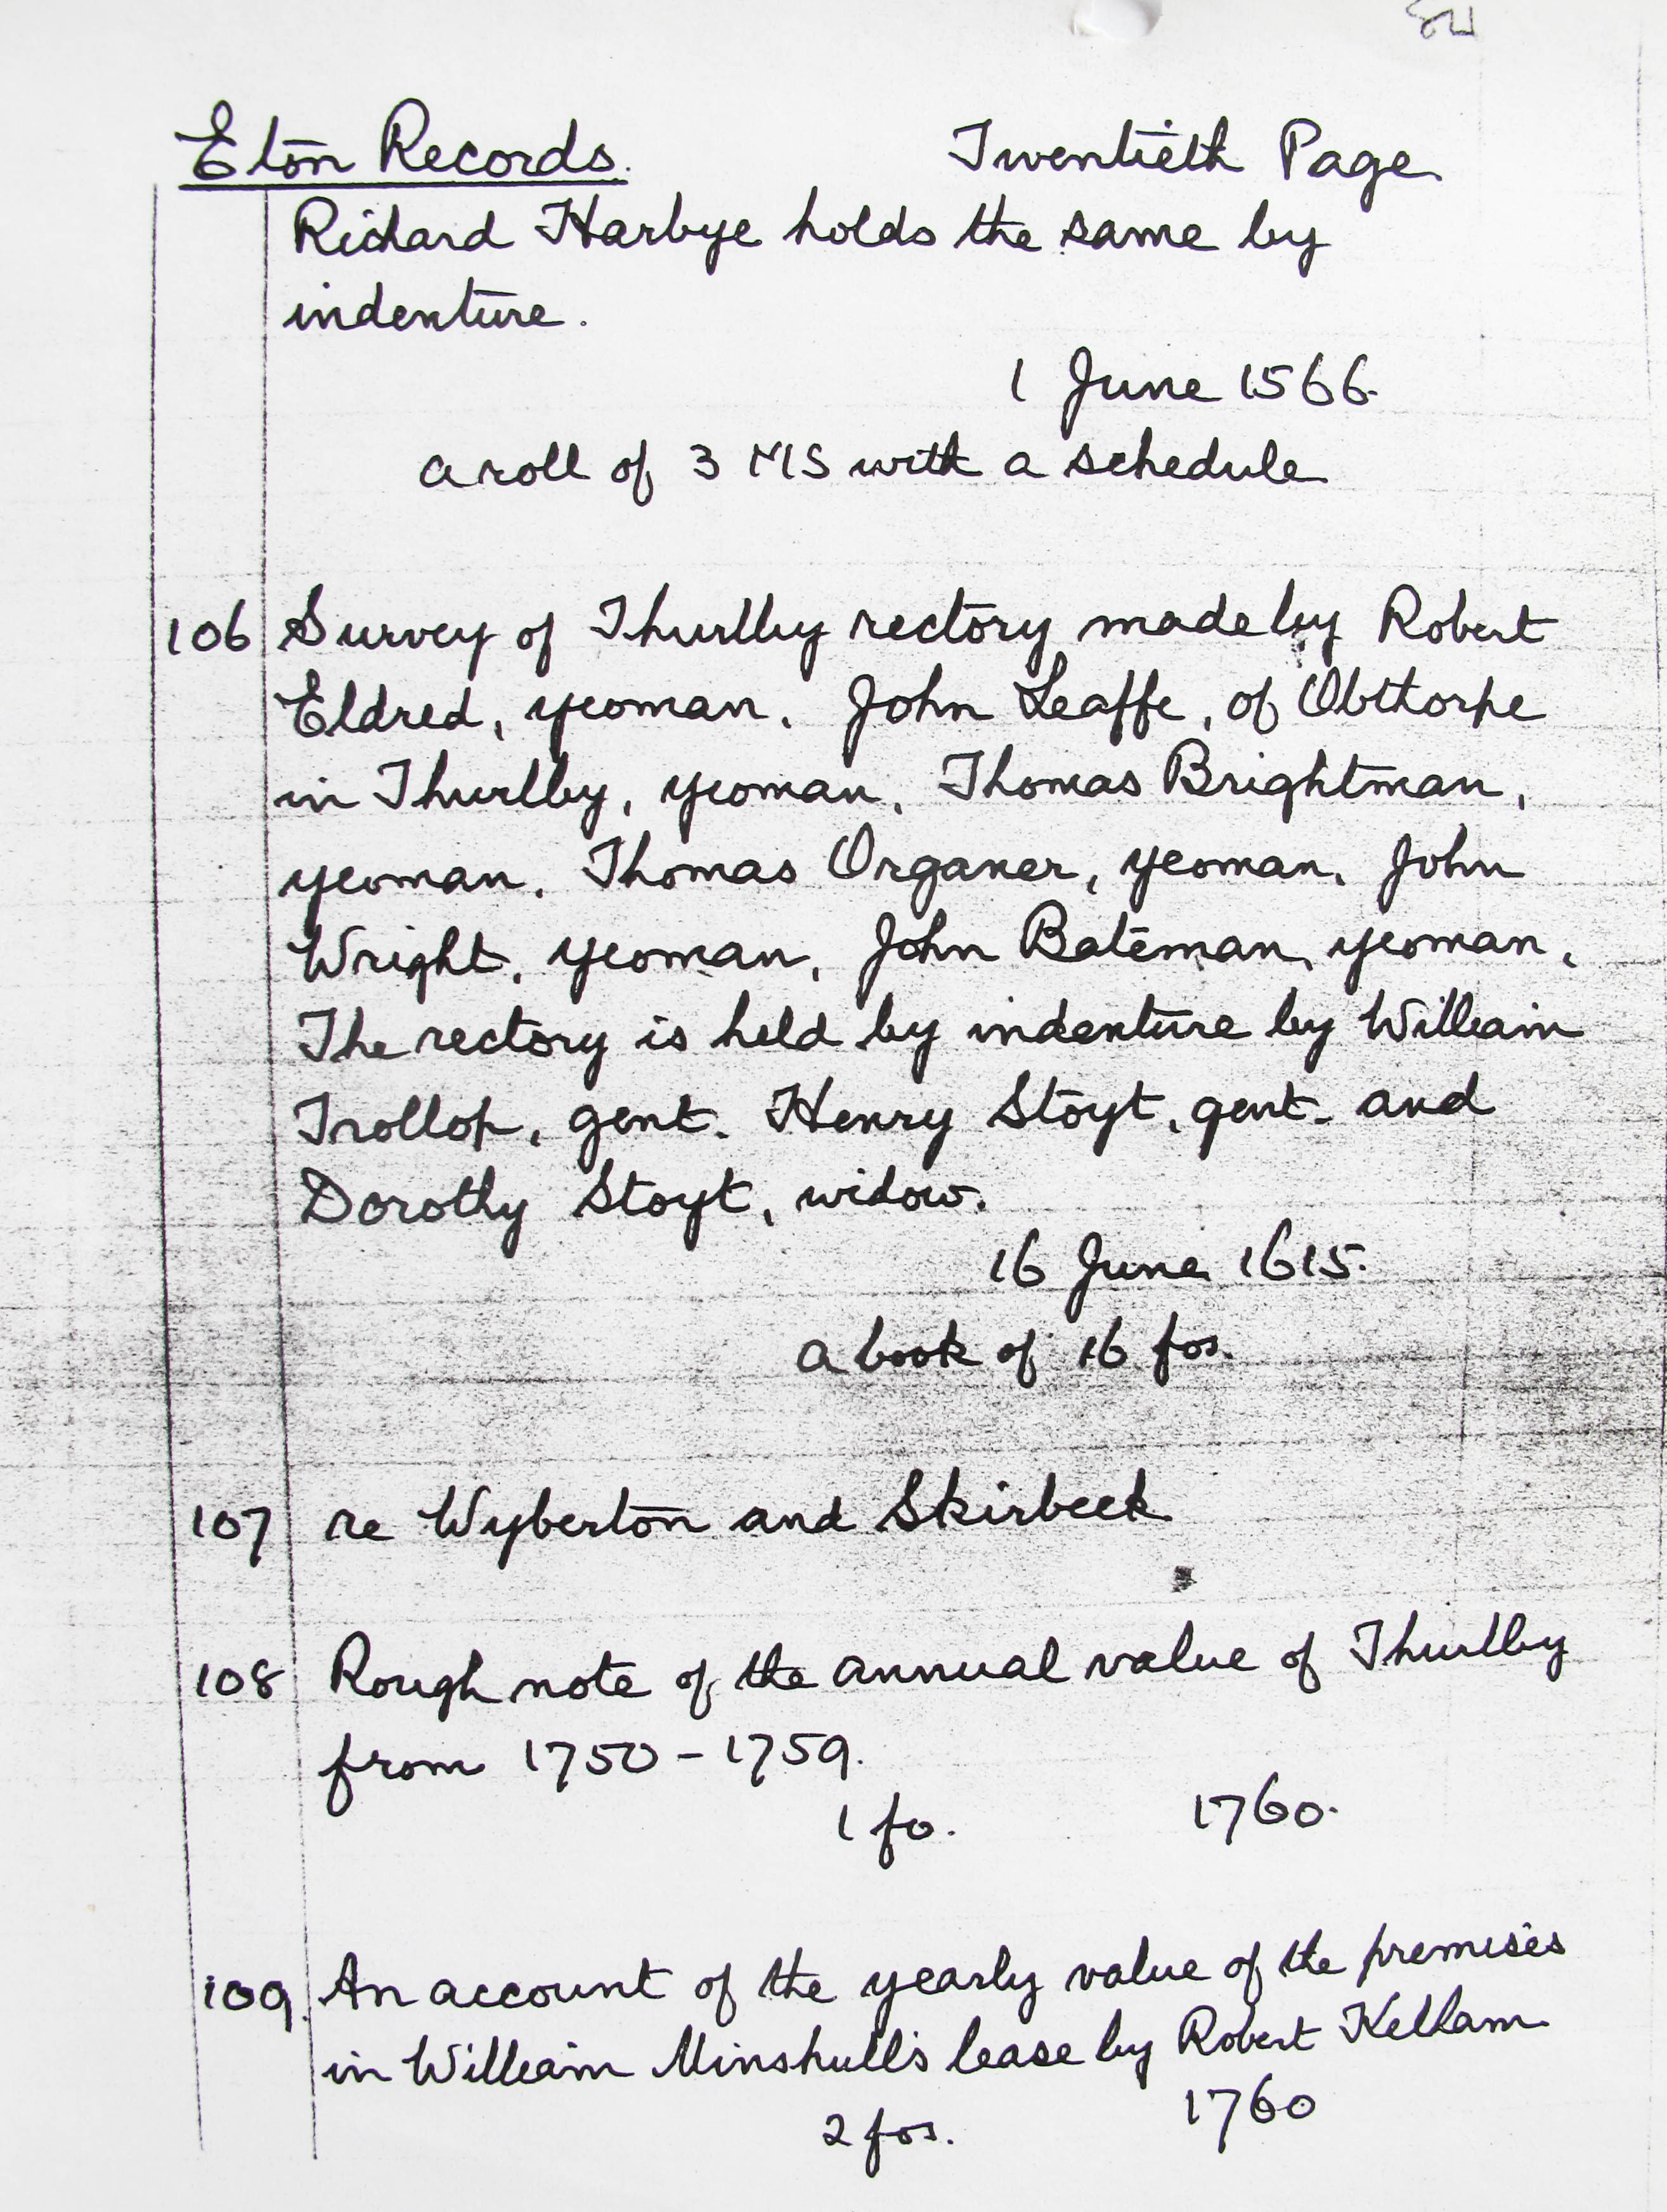 Eton Records. Twentieth Page
Richard Harbye holds the same by
indenture.
1 June 1566.
a roll of 3 MS with a schedule
106 Survey of Thurlby rectory made by Robert
Eldred, yeoman, John Leaffe, of Obthorpe
in Thurlby, yeoman, Thomas Brightman,
yeoman, Thomas Organer, yeoman, John
Wright, yeoman, John Bateman, yeoman,
The rectory is held by indenture by William
Trollop, gent. Henry Stoyt, gent. and
Dorothy Stoyt, widow.
16 June 1615.
a book of 16 fos.
107 re Wyberton and Skirbeck
108 Rough note of the annual value of Thurlby
from 1750-1759.
1 fo. 1760.
109. An account of the yearly value of the premises
in William Minshull's lease by Robert Kellam
2 fos. 1760